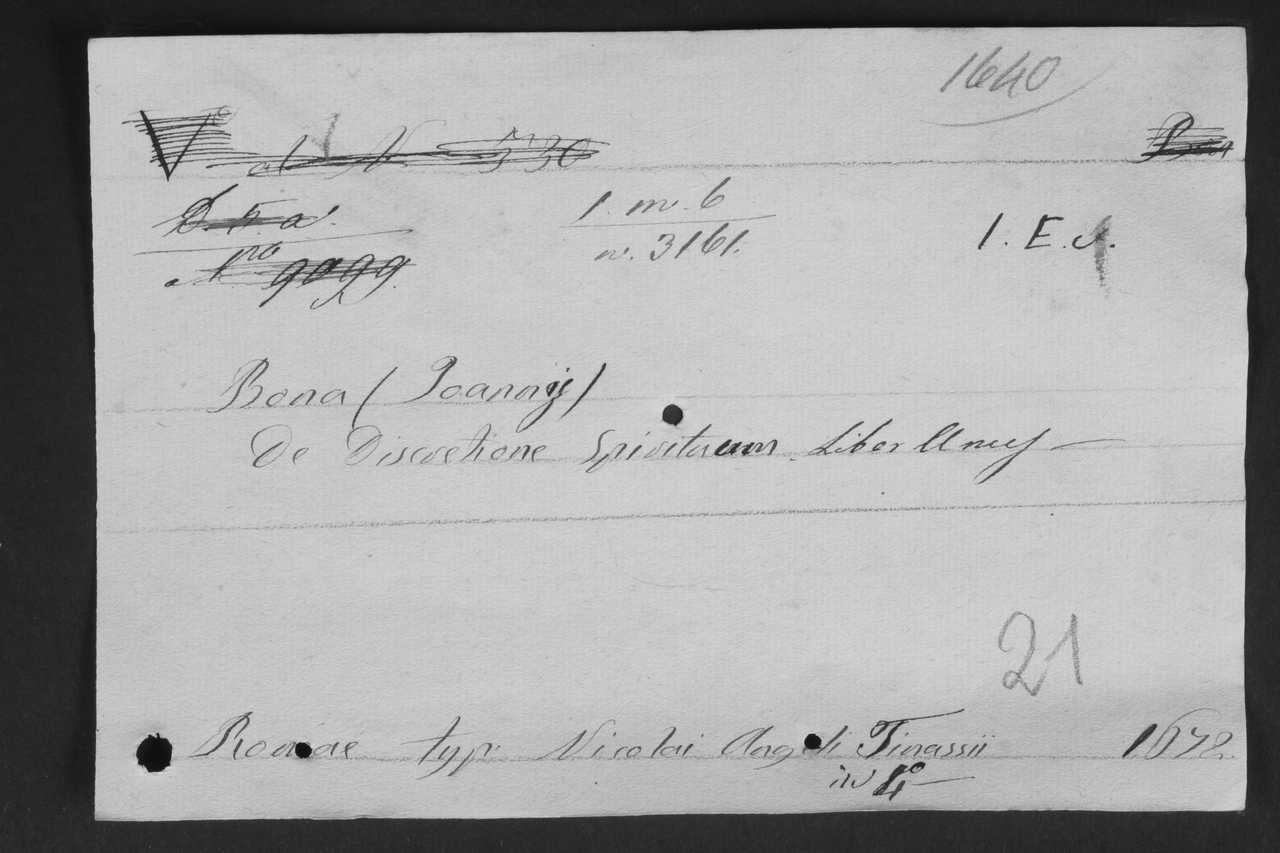 1640
1. m. 6
n. 3161.
1. E.
Bona (Joannis)
De Discretione Spirituum Liber Unus
21
Romae typ: Nicolai Angeli Tinassii 1672.
in 4º